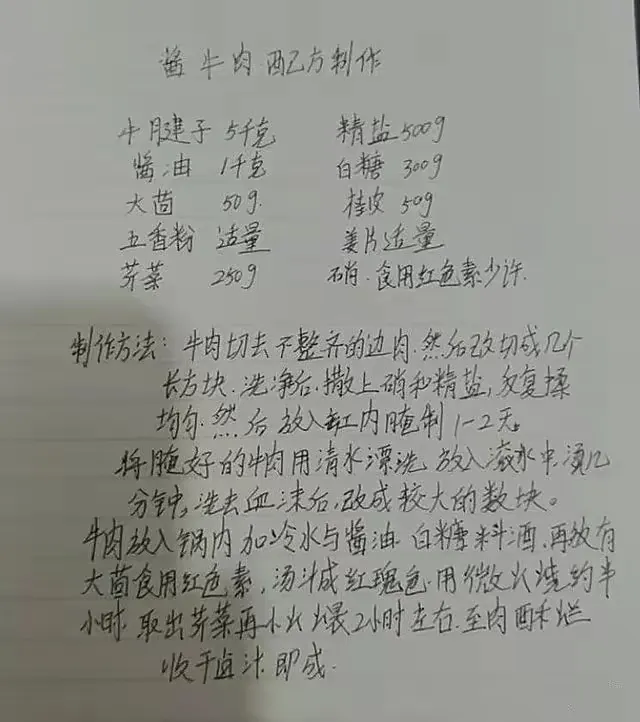 酱牛肉配方制作
牛月建子 5千克 精盐500g
酱油 1千克 白糖 300g
大茴 50g. 桂皮 50g
五香粉 适量 姜片适量
芽菜 250g 硝.食用红色素少许.
制作方法:牛肉切去不整齐的边肉.然后改切成几个
长方块.洗净后.撒上硝和精盐,反复揉
均匀.然后放入缸内腌制1-2天。
将腌好的牛肉用清水漂洗.放入滚水中.烫几
分钟,洗去血沫后,改成较大的数块。
牛肉放入锅内加冷水与酱油.白糖料酒.再放有
大茴食用红色素,汤汁成红瑰色.用微火烧约半
小时.取出芽菜再小火煨2小时左右.至肉酥烂
收干卤汁即成.